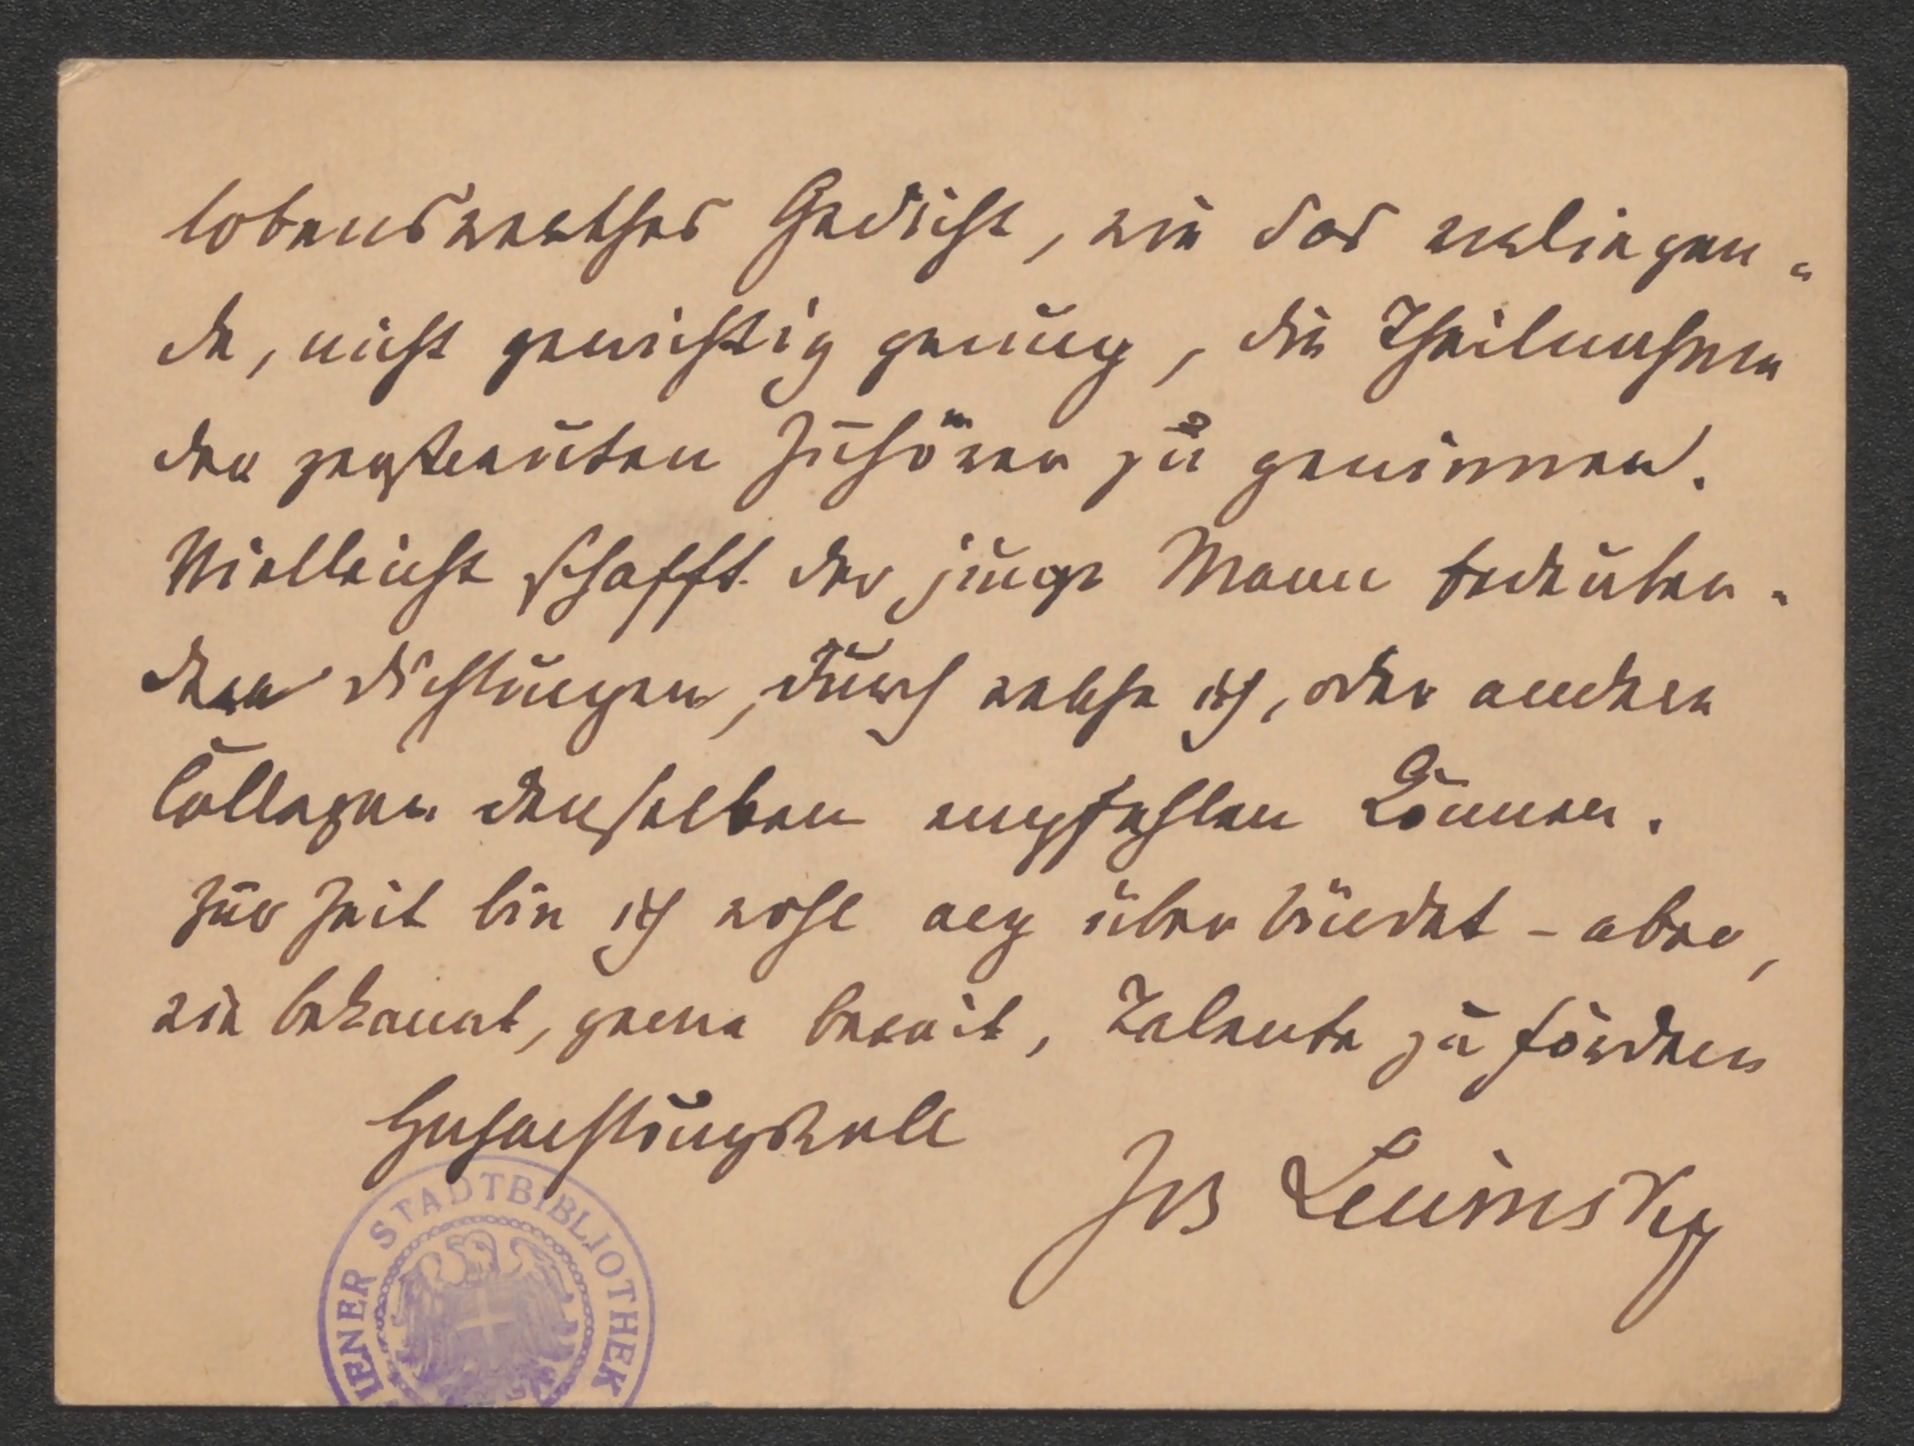 lobenswerthes Gedicht, wie das vorliegen-
de, nicht gewichtig genug, die Theilnahme
der zerstreuten Zuhörer zu gewinnen.
Vielleicht schafft der junge Mann bedeuten-
dere Dichtungen, durch welche ich, oder andere
Collegen denselben empfehlen können.
Zur Zeit bin ich wohl arg überbürdet - aber,
wie bekannt, gerne bereit, Talente zu fördern
Hochachtungsvoll
Jos Lewinsky
IENER STADTBIBLIOTHEK